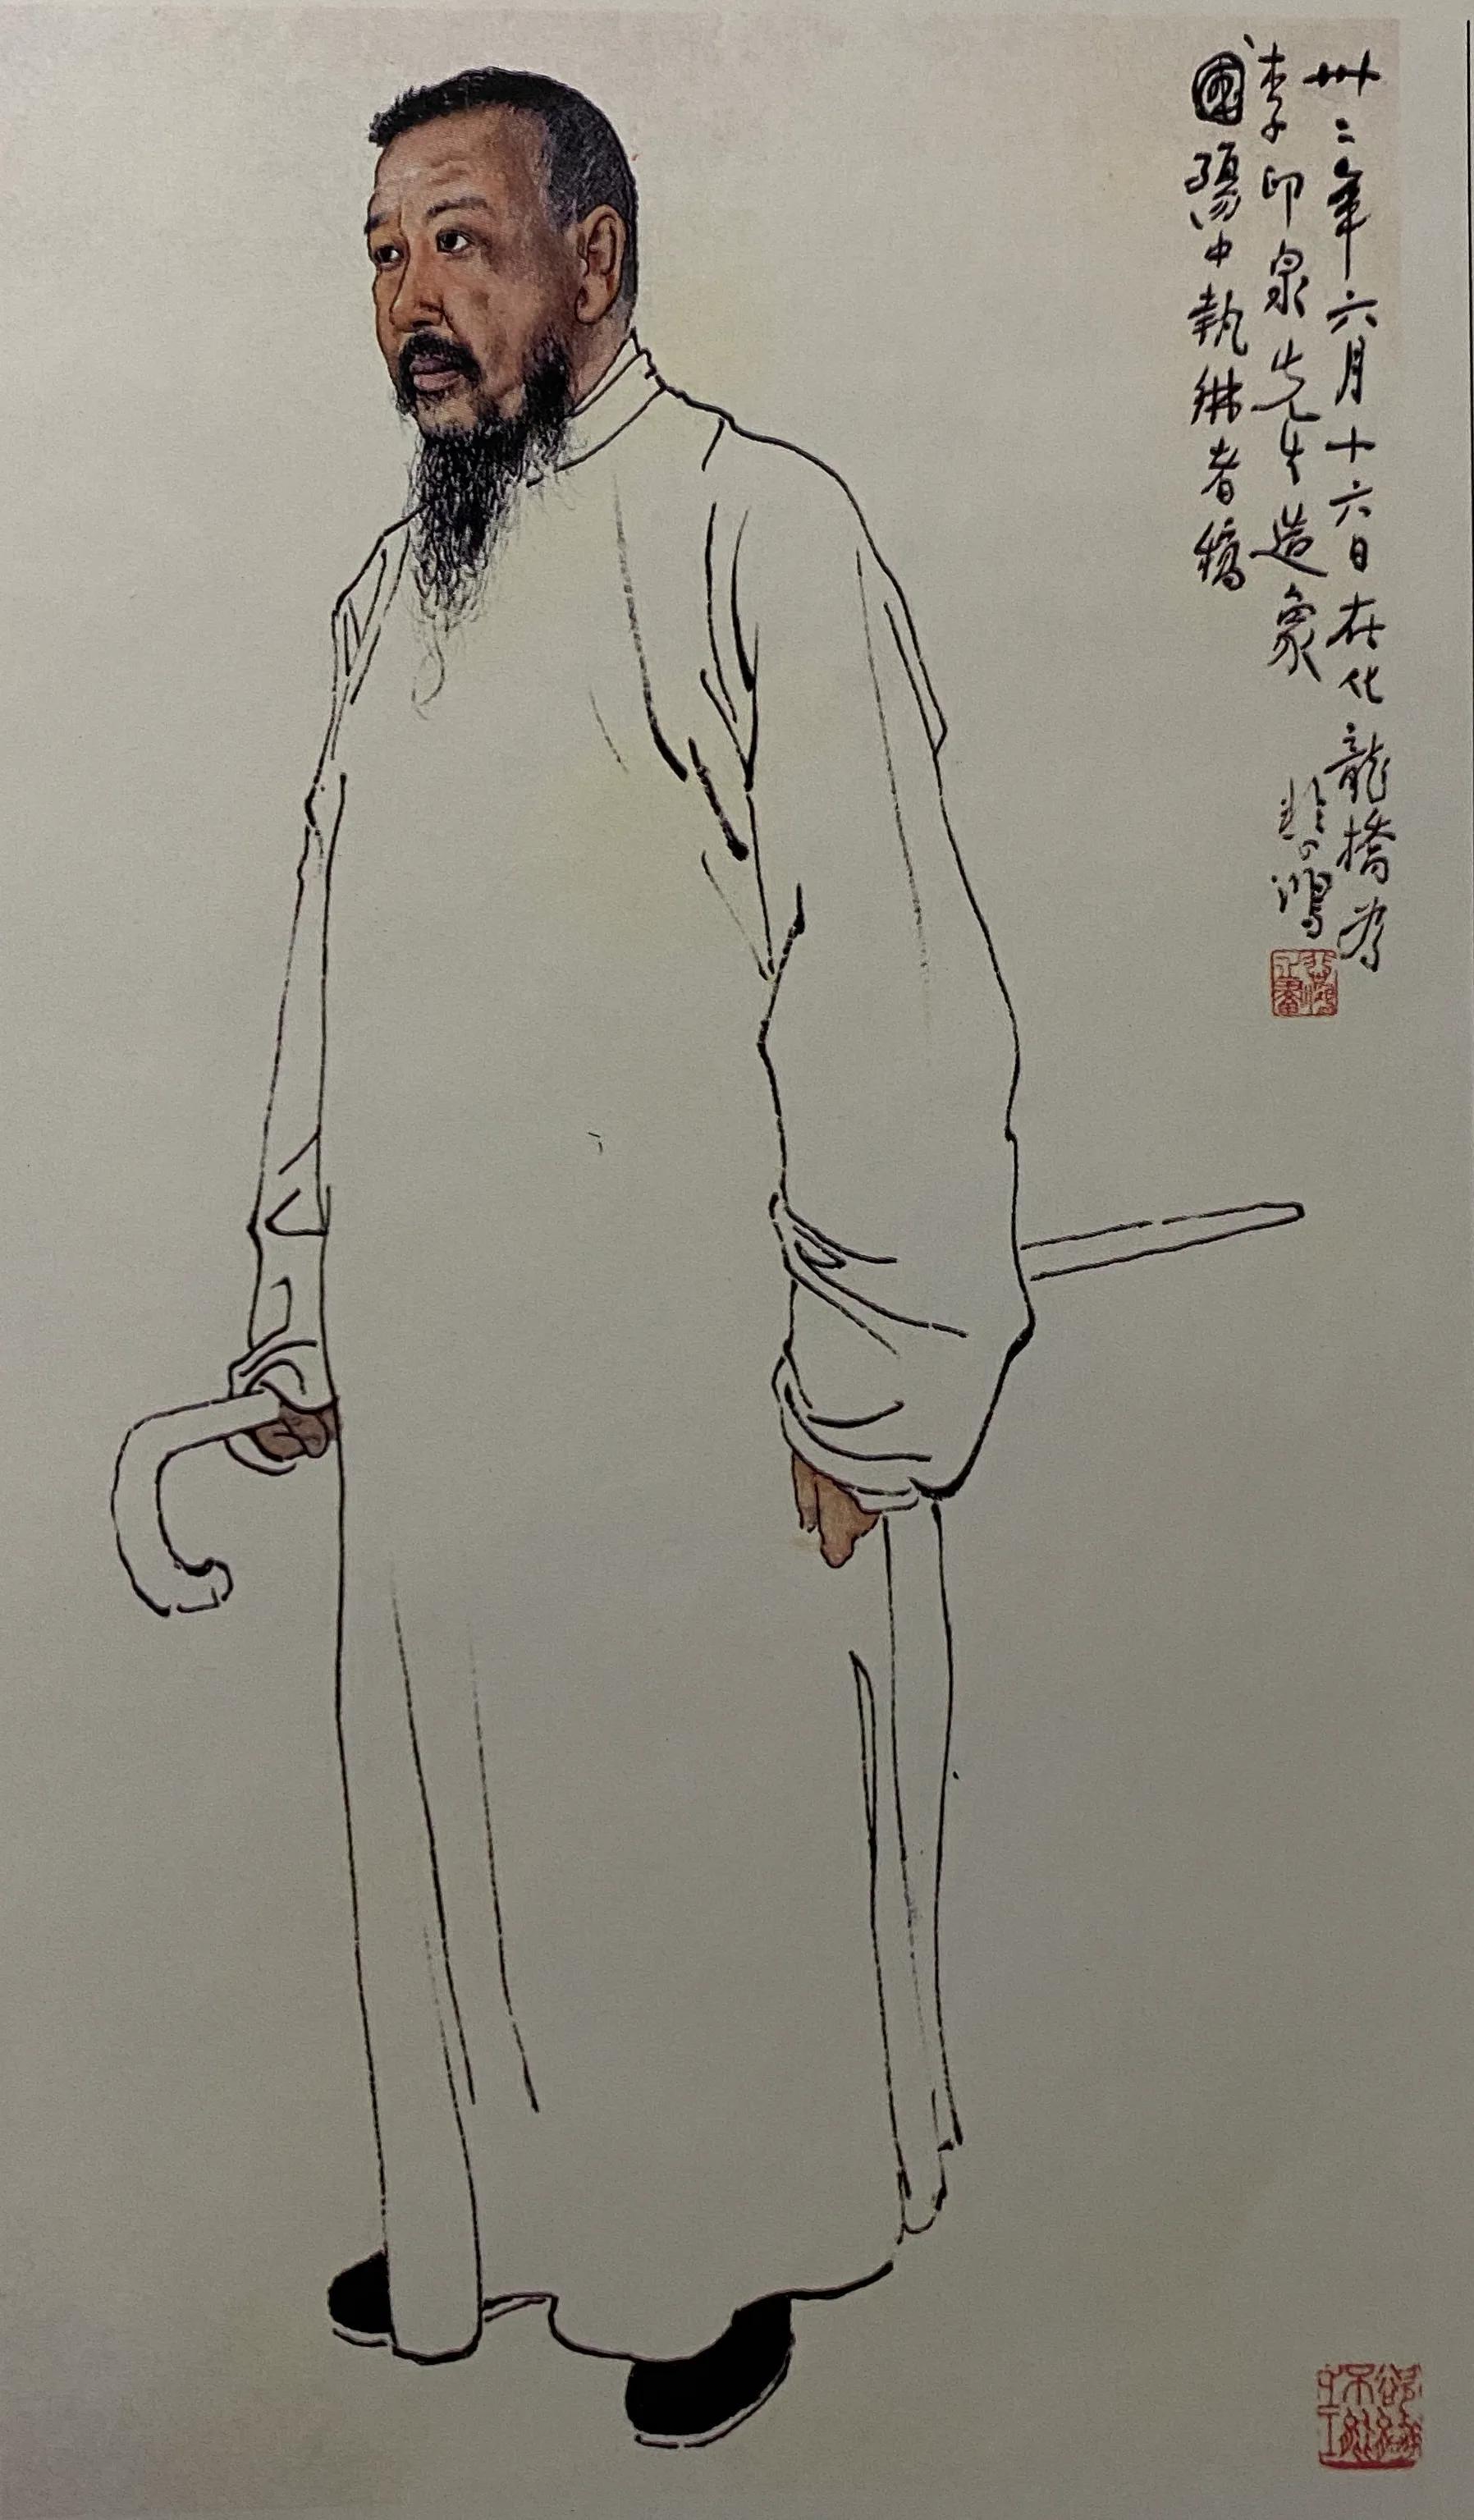 卅二年六月十六日在化龍橋為
李印泉先生造象 悲鴻
國殤中執紼者稿